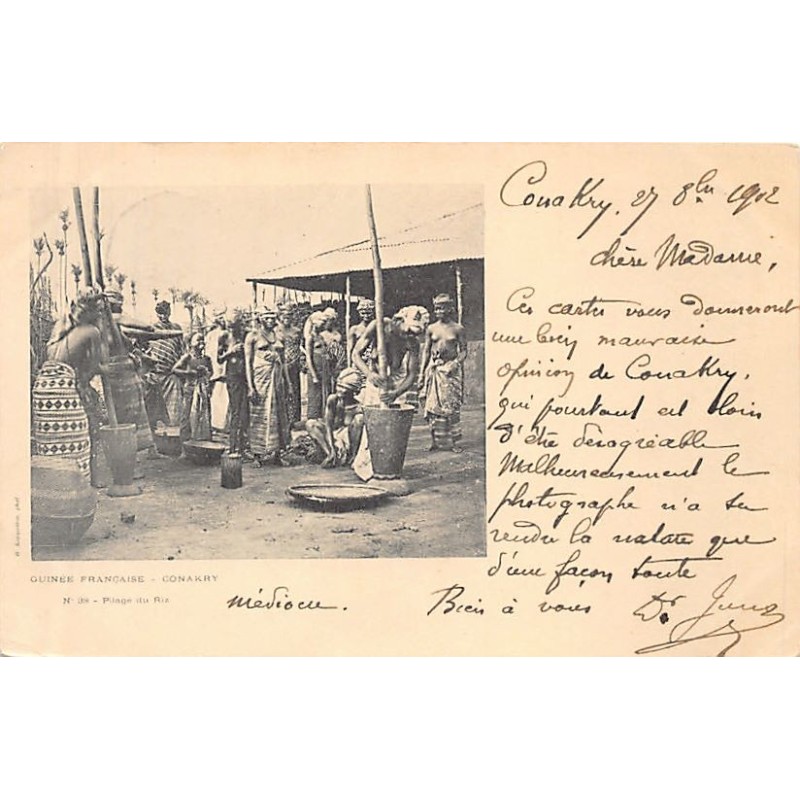 Conakry, 27 8bre 1902
Chère Madame,
Ces cartes vous donneront
une bien mauvaise
opinion de Conakry,
qui pourtant est loin
d'être désagréable
Malheureusement le
photographe n'a su
rendre la nature que
d'une façon toute
médiocre. Bien à vous Dr
GUINÉE FRANÇAISE - CONAKRY
N° 38 - Pilage du Riz